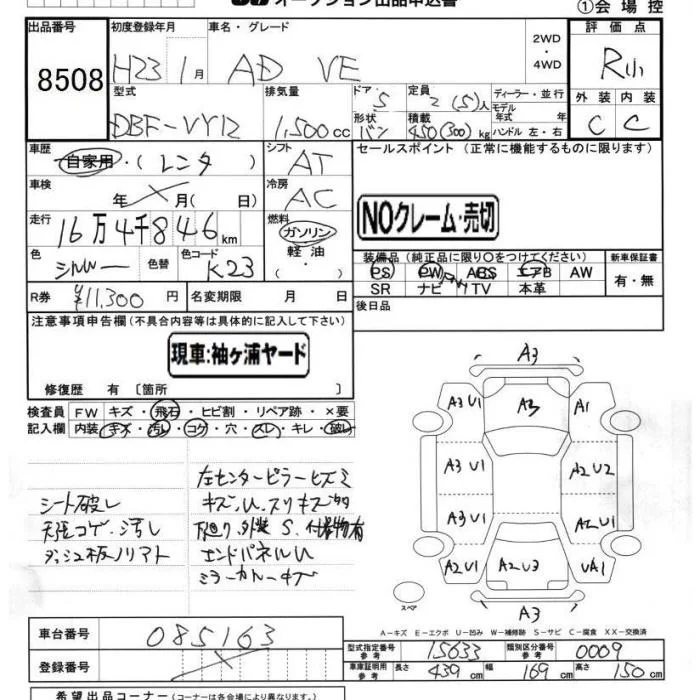 オークション出品申込書
①会場控
出品番号 8508
初度登録年月 H23 1月
車名・グレード AD VE
2WD ・ 4WD
評価点 R小
外装 C 内装 C
型式 DBF-VY12
排気量 1,500cc
ドア 5
形状 バン
定員 2(5)人
積載 450(300)kg
ディーラー・並行
モデル年式 年式
ハンドル 左・右
車歴 自家用・(レンタ)
シフト AT
セールスポイント (正常に機能するものに限ります)
車検 年 月( 日)
冷房 AC
NOクレーム・売切
走行 16万4千846km
燃料 ガソリン 軽油 ・
色 シルバー 色替 色コード K23
装備品(純正品に限り○をつけてください)
PS PW ABS エアB AW
SR ナビ TV 本革
新車保証書 有・無
R券 ¥11,300円 名変期限 月 日
後日品
注意事項申告欄(不具合内容等は具体的に記入して下さい)
現車:袖ヶ浦ヤード
修復歴 有 〔箇所
検査員記入欄
FW キズ・飛石・ヒビ割・リペア跡・×要
内装 キズ・汚し・コゲ・穴・スレ・キレ・破レ
シート破レ
天径コゲ、汚し
ダッシュ板ノリアト
左センターピラーヒズミ
キズ、U、スリキズ多
下廻り、外装 S、付着物有
エンドパネルU
ミラーカバーキズ
A3
A3U1 A3 A1
A3U1 A2U2
A3U1 A2U1
A2U1 A2U3 UA1
A3
スペア
A-キズ E-エクボ U-凹み W-補修跡 S-サビ C-腐食 XX-交換済
車台番号 085163
登録番号
型式指定番号 参考 15633 類別区分番号 参考 0009
車庫証明用 参考 長さ 439cm 幅 169cm 高さ 150cm
希望出品コーナー(コーナーは各会場により異なります)